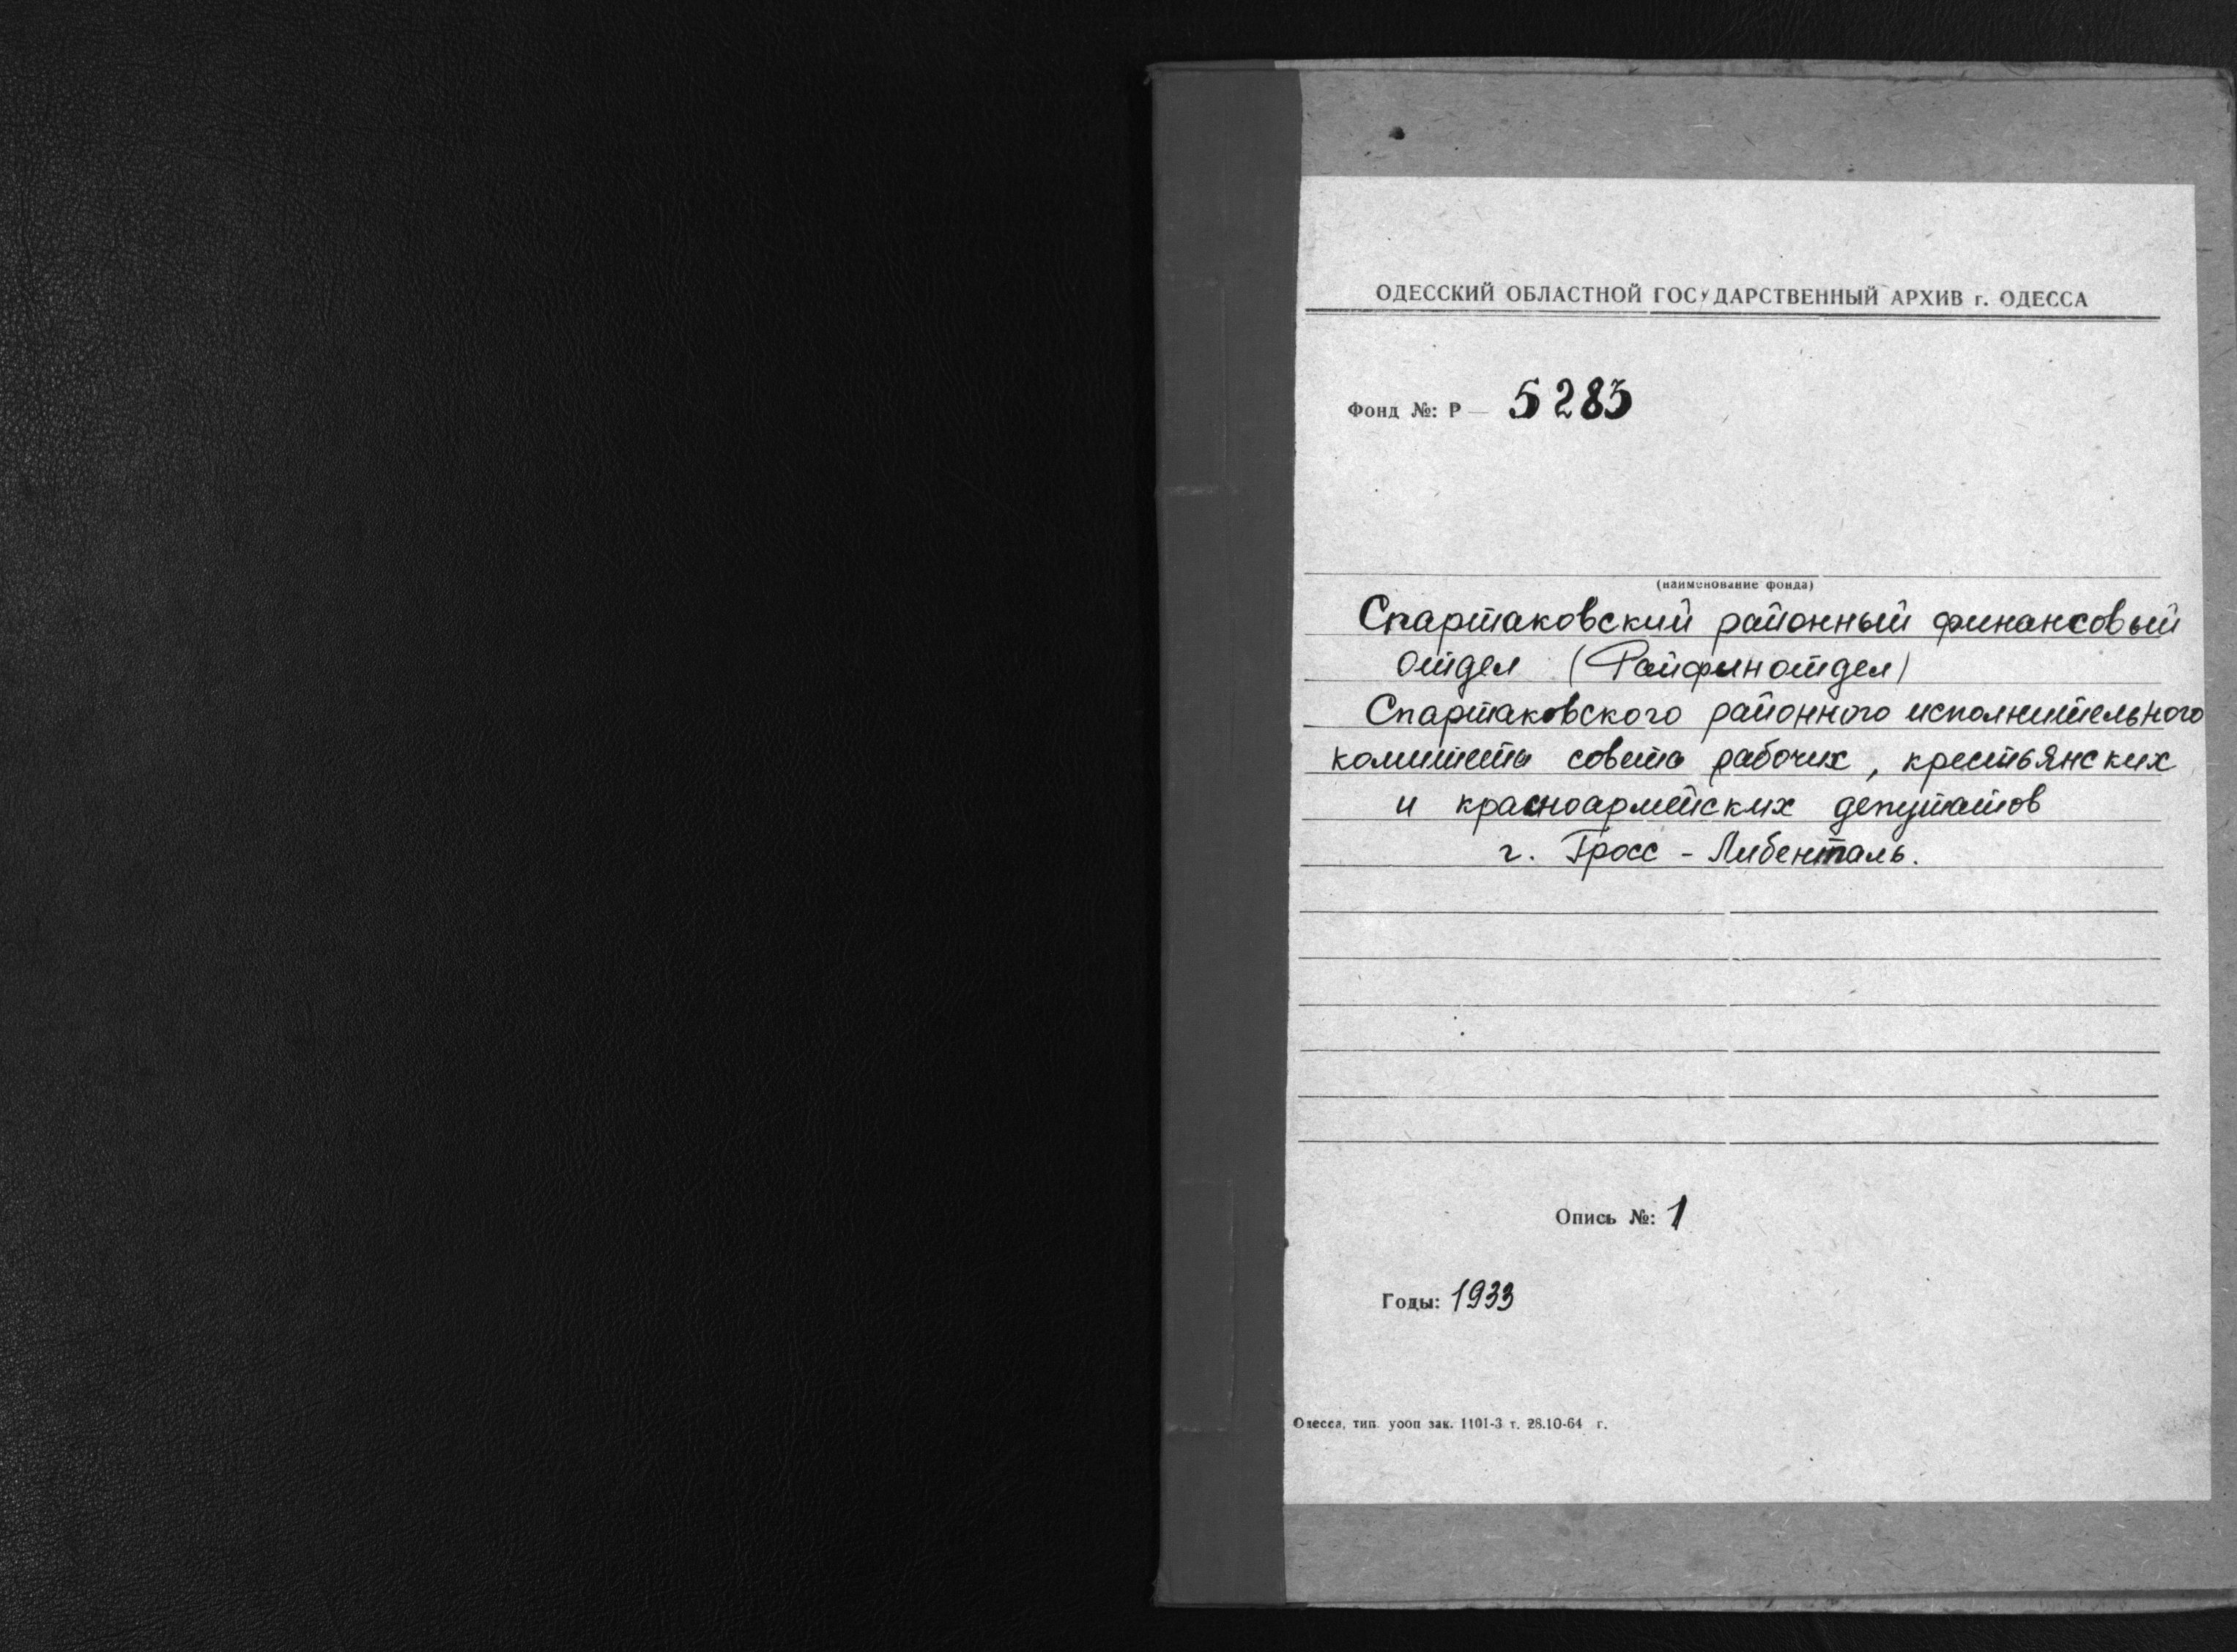 ОДЕССКИЙ ОБЛАСТНОЙ ГОСУДАРСТВЕННЫЙ АРХИВ г. ОДЕССА
Фонд №: Р — 5283
(наименование фонда)
Спартаковский районный финансовый
отдел (Райфинотдел)
Спартаковского районного исполнительного
комитета совета рабочих, крестьянских
и красноармейских депутатов
г. Гросс - Либенталь.
Опись №: 1
Годы: 1933
Одесса, тип. уооп зак. 1101-3 т. 28.10-64 г.